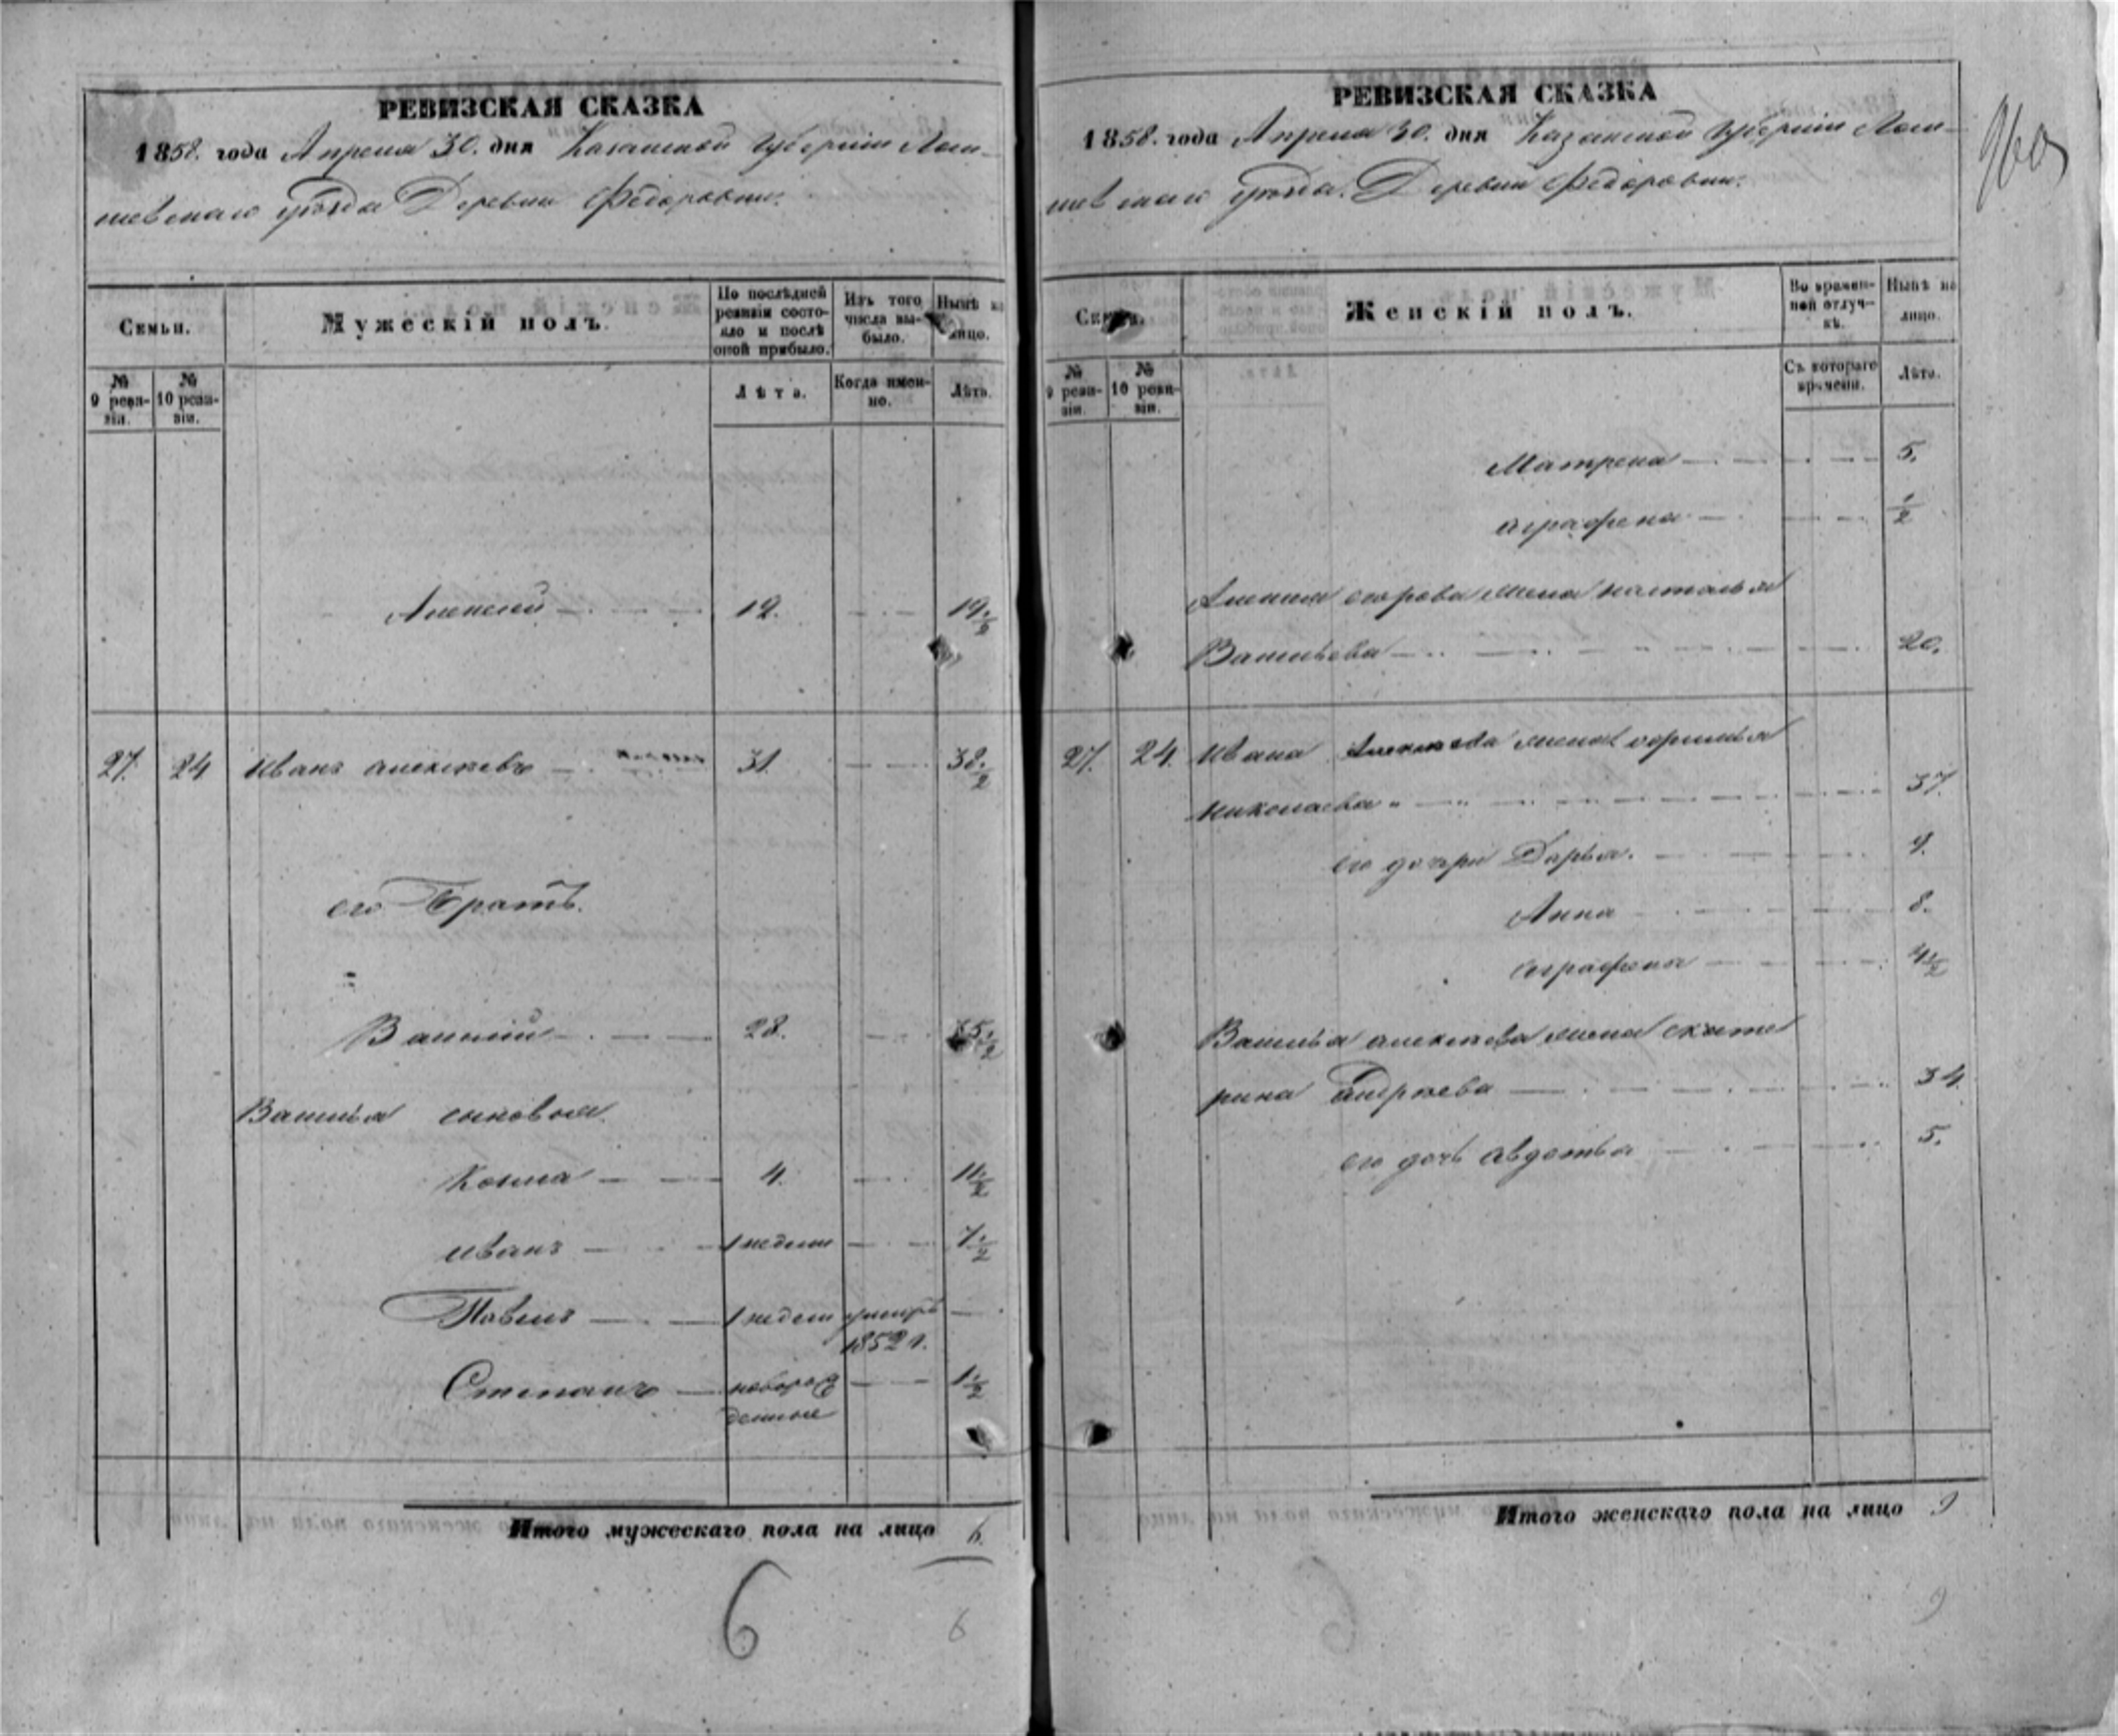 РЕВИЗСКАЯ СКАЗКА
1858. года Апреля 30. дня Казанской губернiи Лаи-
шевскаго уѣзда Деревни Федоровки.
Семьи.
Мужескiй полъ.
По послѣдней ревизiи состояло и послѣ оной прибыло.
Изъ того числа выбыло.
Нынѣ на лицо.
№ 9 ревизiи.
№ 10 ревизiи.
Лѣта.
Когда именно.
Лѣта.
Алексей 12. 19 1/2
27. 24 Иванъ Алексѣевъ 31. 38 1/2
его Братъ.
Василий 28. 35 1/2
Василья сыновья
Козма 4. 11 1/2
Иванъ 1 недели 7 1/2
Павелъ 1 недели умеръ
1852 г.
Степанъ новорож
денные 1 1/2
Итого мужескаго пола на лицо 6.
6
6
РЕВИЗСКАЯ СКАЗКА
1858. года Апреля 30. дня Казанской губернiи Лаи-
шевскаго уѣзда. Деревни Федоровки.
Семьи.
Женскiй полъ.
Во временной отлучкѣ.
Нынѣ на лицо.
№ 9 ревизiи.
№ 10 ревизiи.
Съ котораго времени.
Лѣта.
Матрена 5.
Аграфена 1/2
Алексея Егорова жена Наталья
Васильева 20.
27. 24. Ивана Алексеева жена
Николаева 37.
его дочери Дарья. 9.
Анна 8.
Аграфена 4 1/2
Василья Алексѣева жена Екате
рина Андрѣева 34.
его дочь Авдотья 5.
Итого женскаго пола на лицо 9
9